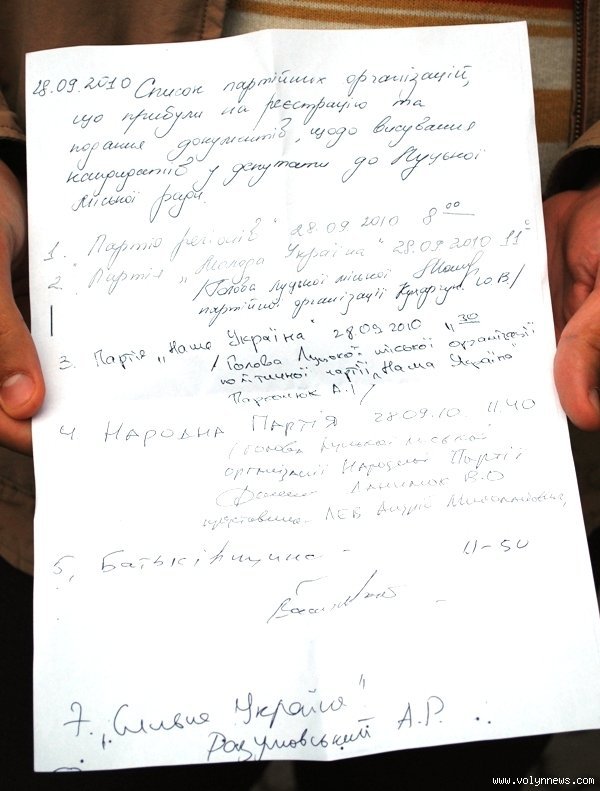 28.09.2010 Список партійних організацій,
що прибули на реєстрацію та
подання документів, щодо висування
кандидатів у депутати до Луцької
міської ради.
1. "Партія регіонів" 28.09.2010 8 00
2. Партія „Молода Україна" 28.09.2010 11
/Голова Луцької міської
партійної організації Ю.В./
3. Партія „Наша Україна" 28.09.2010 11 30
/Голова Луцької міської організації
політичної партії „Наша Україна"
А.І/
4. Народна Партія 28.09.10. 11.40
/голова Луцької міської
організації Народної Партії
Данилюк В.О
представник - ЛЕВ Андрій
5, Батьківщина - 11-50
7. „Сильна Україна"
Розумовський А.Р.
www.volynnews.com